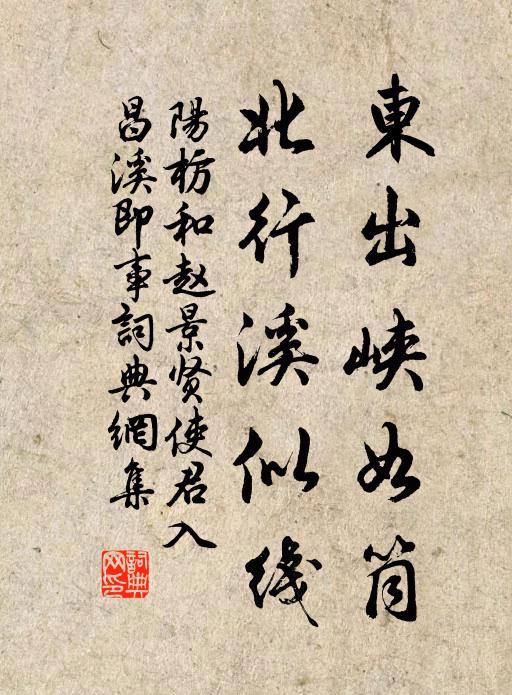 東出峽如筒
北行溪似綫
陽枋和赵景贤使君入
昌溪即事詞典網集
詞典網印